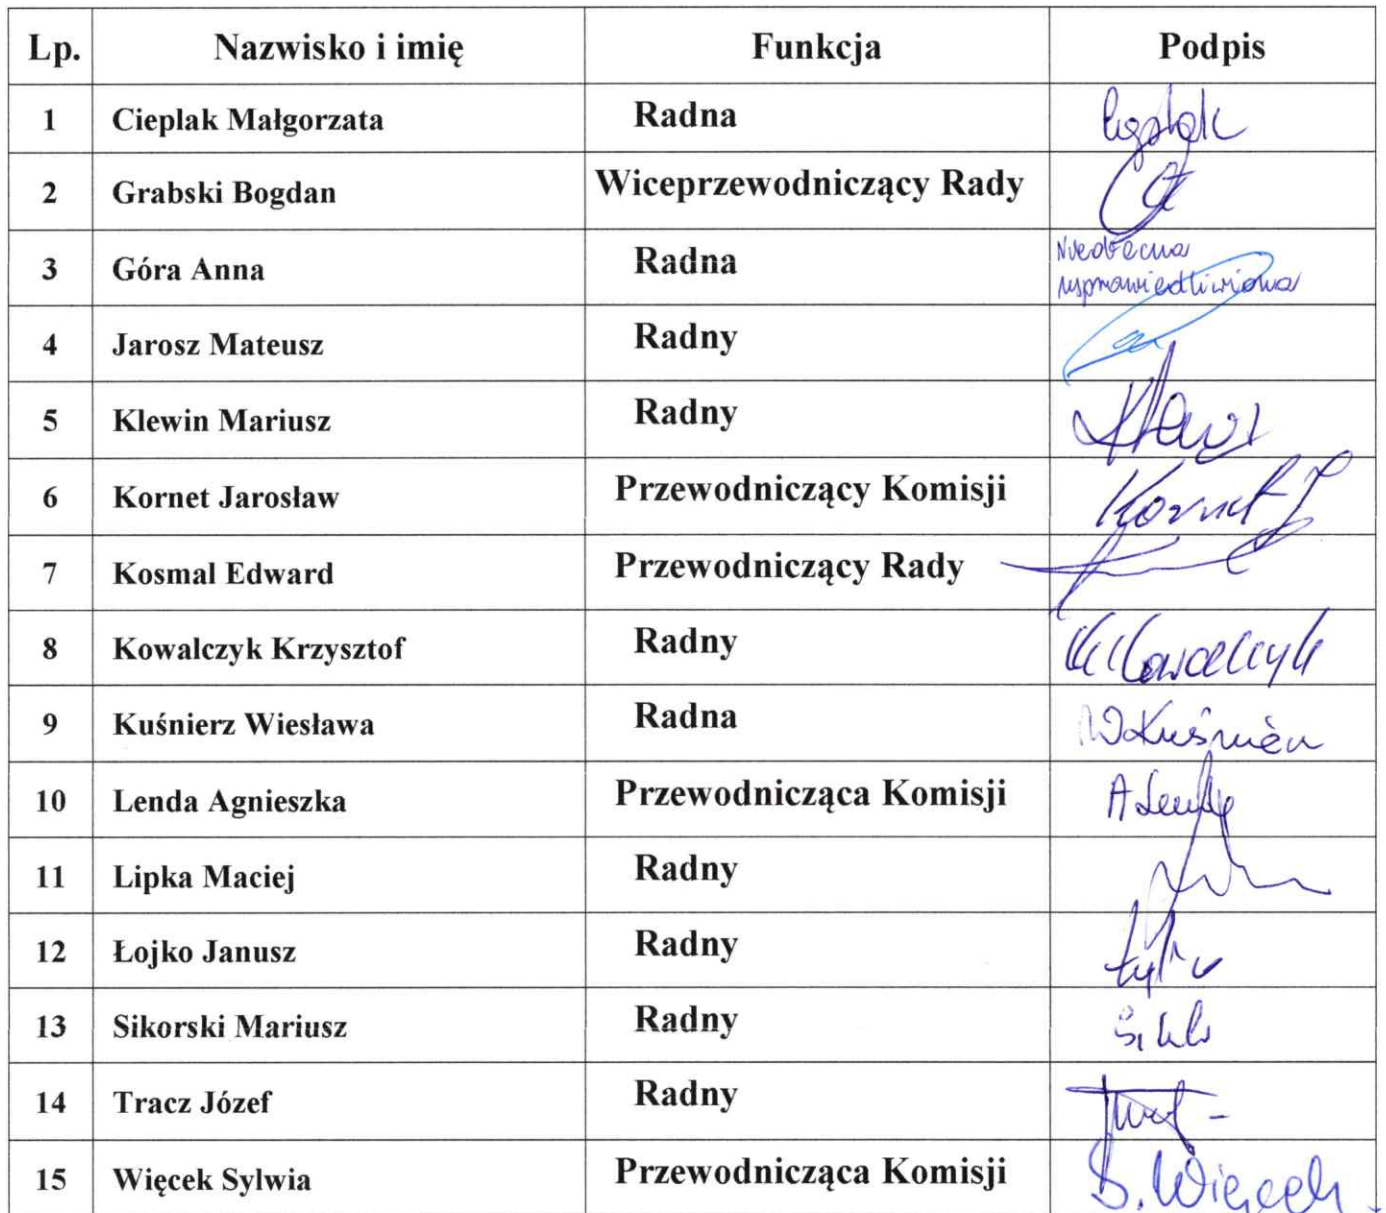 Lp. Nazwisko i imię Funkcja Podpis
1 Cieplak Małgorzata Radna
2 Grabski Bogdan Wiceprzewodniczący Rady
3 Góra Anna Radna Nieobecna
usprawiedliwiona
4 Jarosz Mateusz Radny
5 Klewin Mariusz Radny
6 Kornet Jarosław Przewodniczący Komisji Kornet J
7 Kosmal Edward Przewodniczący Rady
8 Kowalczyk Krzysztof Radny K Kowalczyk
9 Kuśnierz Wiesława Radna W Kuśnierz
10 Lenda Agnieszka Przewodnicząca Komisji A Lenda
11 Lipka Maciej Radny
12 Łojko Janusz Radny
13 Sikorski Mariusz Radny
14 Tracz Józef Radny
15 Więcek Sylwia Przewodnicząca Komisji S. Więcek